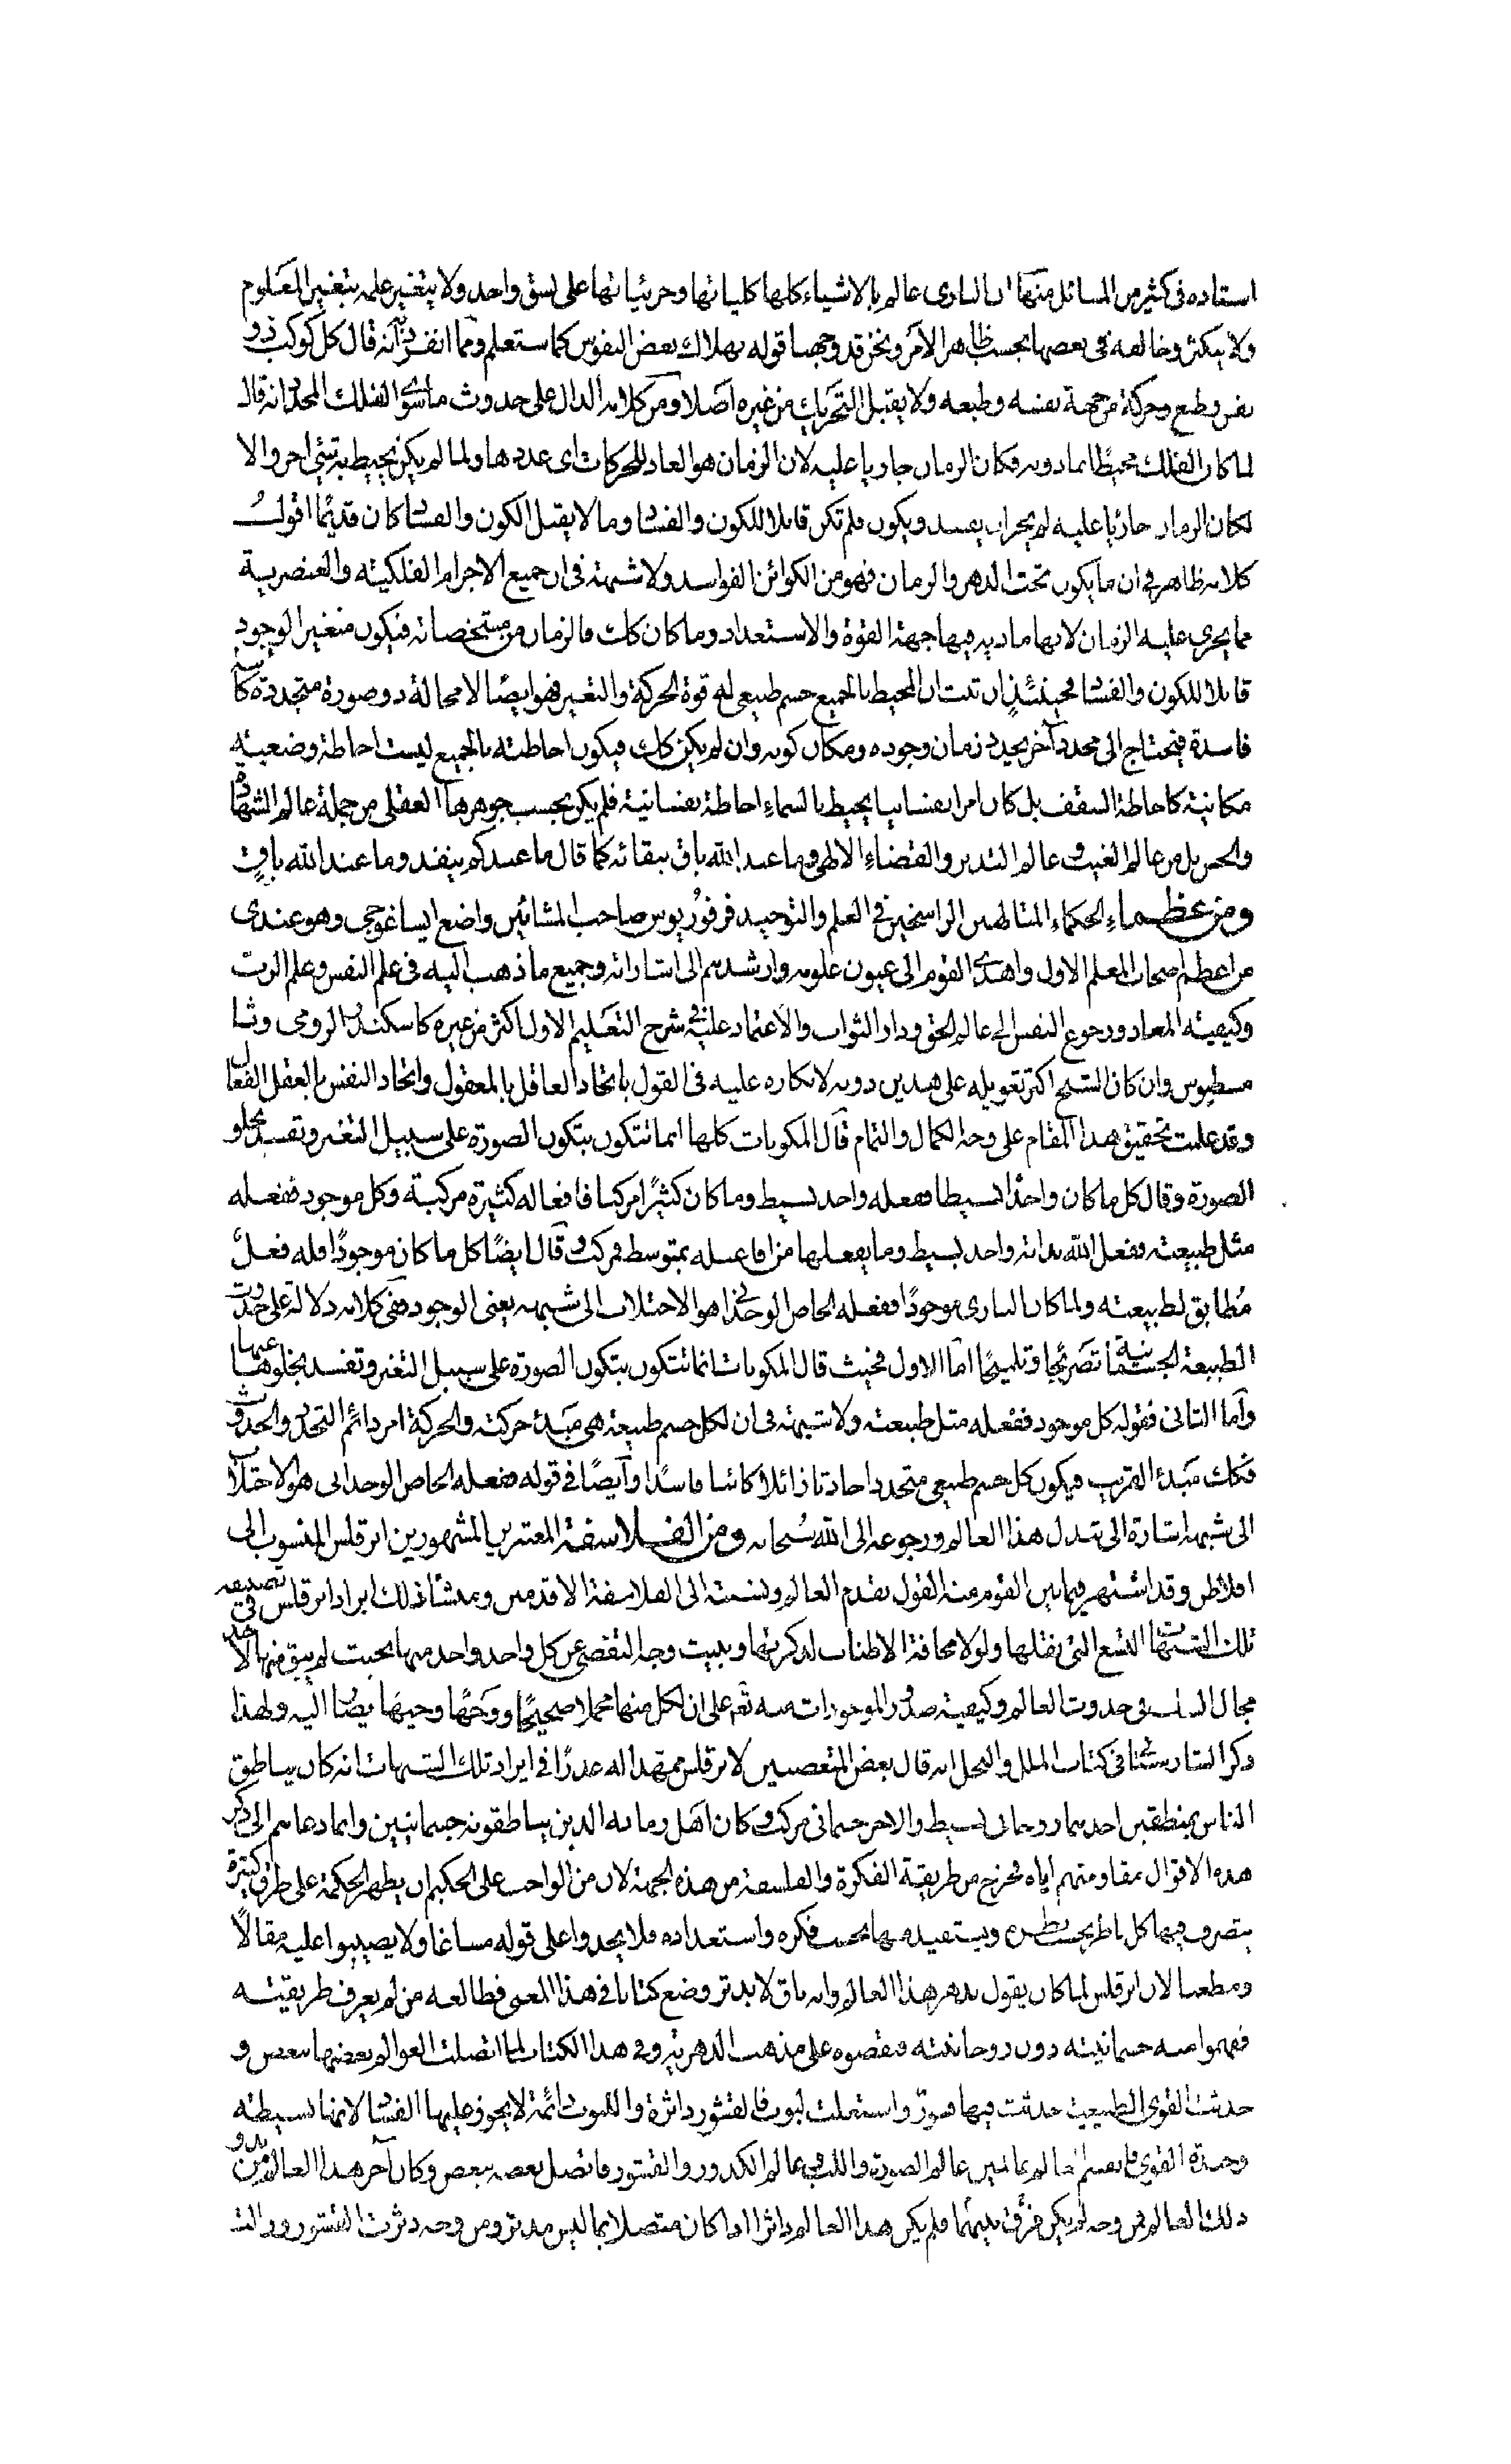 استاده فى كثير من المسائل منها ان البارى عالم بالاشياء كلها كلياتها وجزئياتها على نسق واحد ولا يتغير علمه بتغير المعلوم
ولا يتكثر وخالفه فى بعضها بحسب ظاهر الامر ونحن قد وجهنا قوله بهلاك بعض النفوس كما ستعلم ومما انفرد به انه قال كل كوكب ذو
نفس وطبع وحركة من جهة نفسه وطبعه ولا يقبل التحريك من غيره اصلا ومن كلامه الدال على حدوث ما سوى الفلك المحدد انه قال
لما كان الفلك محيطا بما دونه فكان الزمان جاريا عليه لان الزمان هو العاد للحركات اى عددها ولما لم يكن يحيط به شئ اخر والا
لكان الزمان جاريا عليه لم يجز ان يفسد ويكون فلم تكن قابلا للكون والفساد وما لا يقبل الكون والفساد كان قديما اقول
كلامه ظاهر فى ان ما يكون تحت الدهر والزمان فهو من الكوائن الفواسد ولا شبهة فى ان جميع الاجرام الفلكيته والعنصرية
مما يجرى عليه الزمان لانها مادية فيها جهة القوة والاستعداد وما كان كك فالزمان من مشخصاته فيكون متغير الوجود
قابلا للكون والفساد فحينئذ ان ثبت ان المحيط بالجميع جسم طبيعى له قوة الحركة والتغير فهو ايضا لا محالة ذو صورة متجددة كائنة
فاسدة فيحتاج الى محدد آخر يحدد زمان وجوده ومكان كونه وان لم يكن كك فيكون احاطته بالجميع ليست احاطة وضعيته
مكانية كاحاطة السقف بل كان امرا نفسانيا يحيط بالسماء احاطة نفسانية فلم يكن بحسب جوهرها العقلى من جملة عالم الشهادة
والحس بل من عالم الغيب وعالم التدبير والقضاء الالهى وما عند الله باق ببقائه كما قال ما عندكم ينفد وما عند الله باق
ومن عظماء الحكماء المتالهين الراسخين فى العلم والتوحيد فرفوريوس صاحب المشائين واضع ايساغوجى وهو عندى
من اعظم اصحاب المعلم الاول واهدى القوم الى عيون علومه وارشدهم الى اشاراته وجميع ما ذهب اليه فى علم النفس وعلم الرب
وكيفيته المعاد ورجوع النفس الى عالم الحق ودار الثواب والاعتماد عليه فى شرح التعليم الاول اكثر من غيره كاسكندر الرومى وثا
مسطيوس وان كان الشيخ اكثر تعويله على هدين دونه لانكاره عليه فى القول باتحاد العاقل بالمعقول واتحاد النفس بالعقل الفعال
وقد علمت تحقيق هذا المقام على وجه الكمال والتمام قال المكونات كلها انما تتكون بتكون الصورة على سبيل التغير وتفسد بخلو
الصورة وقال كل ما كان واحدا بسيطا ففعله واحد بسيط وما كان كثيرا مركبا فافعاله كثيرة مركبة وكل موجود ففعله
مثل طبيعته ففعل الله بذاته واحد بسيط وما يفعلها من افاعيله بمتوسط فمركب وقال ايضا كل ما كان موجودا فله فعل
مطابق لطبيعته ولما كان البارى موجودا ففعله الخاص الوحدانى هو الاجتلاب الى شبهه يعنى الوجود ففى كلامه دلالة على حدوث
الطبيعة الجسمانية تصريحا وتلميحا اما الاول فحيث قال المكونات انما تتكون بتكون الصورة على سبيل التغير وتفسد بخلوها عنها
واما الثانى فقوله كل موجود ففعله مثل طبيعته ولا شبهة فى ان لكل جسم طبيعة هى مبدء حركته والحركة امر دائم التجدد والحدوث
فكك مبدء القريب فيكون كل جسم طبيعى متجددا حادثا زائلا كائنا فاسدا وايضا فى قوله ففعله الخاص الوحدانى هو الاجتلاب
الى شبهه اشارة الى تبدل هذا العالم ورجوعه الى الله سبحانه ومن الفلاسفة المعتبرين المشهورين ابرقلس المنسوب الى
افلاطن وقد اشتهر فيما بين القوم منه القول بقدم العالم ونسبته الى الفلاسفة الاقدمين ومنشأ ذلك ايراد ابرقلس فى تصنيفه
تلك الشبهات التسع التى نقلها ولولا مخافة الاطناب لذكرتها وبينت وجه التفصى عن كل واحد واحد منها بحيث لم يبق فيها لاحد
مجال الشك فى حدوث العالم وكيفية صدور الموجودات منه تعم على ان لكل منها محملا صحيحا ووجها وجيها يصار اليه ولهذا
ذكر الشارستانى فى كتاب الملل والنحل انه قال بعض المتعصبين لابرقلس ممهدا له عذرا فى ايراد تلك الشبهات انه كان يناطق
الناس بمنطقين احدهما روحانى بسيط والاخر جسمانى مركب وكان اهل زمانه الذين يناطقونه جسمانيين وانما دعاهم الى ذكر
هذه الاقوال مقاومتهم اياه فخرج من طريقة الفكرة والفلسفة من هذه الجهة لان من الواجب على الحكيم ان يظهر الحكمة على طرق كثيرة
يتصرف فيها كل ناظر بحسب نظره ويستفيد منها بحسب فكره واستعداده فلا يجدوا على قوله مساغا ولا يصيبوا عليه مقالا
ومطعنا لان ابرقلس لما كان يقول بدهر هذا العالم وانه باق لا يدثر وضع كتابا فى هذا المعنى فطالعه من لم يعرف طريقيته
ففهموا منه جسمانيته دون روحانيته فنقضوه على مذهب الدهرية وفى هذا الكتاب لما اتصلت العوالم بعضها ببعض و
حدثت القوى الطبيعية حدثت فيها قشور واستبطنت لبوب فالقشور داثرة واللبوب دائمة لا يجوز عليها الفساد لانها بسيطته
وحدة القوى فانقسم العالم عالمين عالم الصورة واللب وعالم الكدور والقشور فاتصل بعضه ببعض وكان آخر هذا العالم من بدو
ذلك العالم فمن وجه لم يكن فرق بينهما فلم يكن هذا العالم داثرا اذا كان متصلا بما ليس يدثر ومن وجه دثرت القشور وزالت